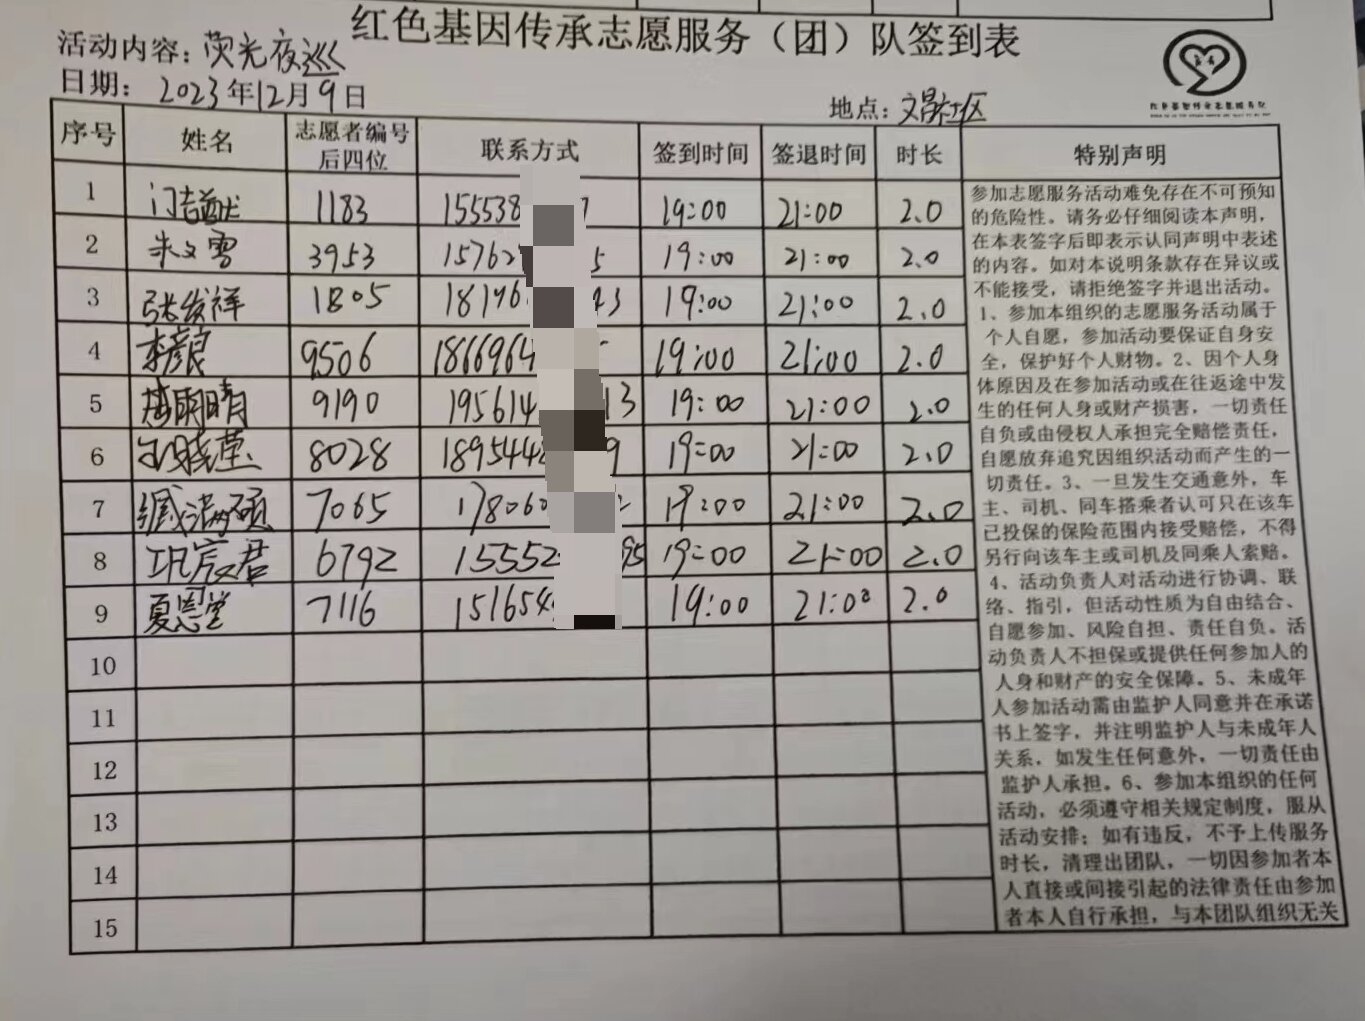 红色基因传承志愿服务（团）队签到表
活动内容：荧光夜巡
日期： 2023年12月9日
地点：文昌社区
序号 姓名 志愿者编号后四位 联系方式 签到时间 签退时间 时长 特别声明
1 1183 155538 7 19:00 21:00 2.0
2 朱文雪 3953 15762 5 19:00 21:00 2.0
3 张发祥 1805 18176 43 19:00 21:00 2.0
4 李彦良 9506 1866964 19:00 21:00 2.0
5 9190 195614 13 19:00 21:00 2.0
6 8028 189544 9 19:00 21:00 2.0
7 7065 178060 19:00 21:00 2.0
8 巩宸君 6792 15552 95 19:00 21:00 2.0
9 夏恩堂 7116 151654 19:00 21:00 2.0
10
11
12
13
14
15
参加志愿服务活动难免存在不可预知
的危险性。请务必仔细阅读本声明，
在本表签字后即表示认同声明中表述
的内容。如对本说明条款存在异议或
不能接受，请拒绝签字并退出活动。
1、参加本组织的志愿服务活动属于
个人自愿，参加活动要保证自身安
全，保护好个人财物。2、因个人身
体原因及在参加活动或在往返途中发
生的任何人身或财产损害，一切责任
自负或由侵权人承担完全赔偿责任，
自愿放弃追究因组织活动而产生的一
切责任。3、一旦发生交通意外，车
主、司机、同车搭乘者认可只在该车
已投保的保险范围内接受赔偿，不得
另行向该车主或司机及同乘人索赔。
4、活动负责人对活动进行协调、联
络、指引，但活动性质为自由结合、
自愿参加、风险自担、责任自负。活
动负责人不担保或提供任何参加人的
人身和财产的安全保障。5、未成年
人参加活动需由监护人同意并在承诺
书上签字，并注明监护人与未成年人
关系，如发生任何意外，一切责任由
监护人承担。6、参加本组织的任何
活动，必须遵守相关规定制度，服从
活动安排；如有违反，不予上传服务
时长，清理出团队，一切因参加者本
人直接或间接引起的法律责任由参加
者本人自行承担，与本团队组织无关